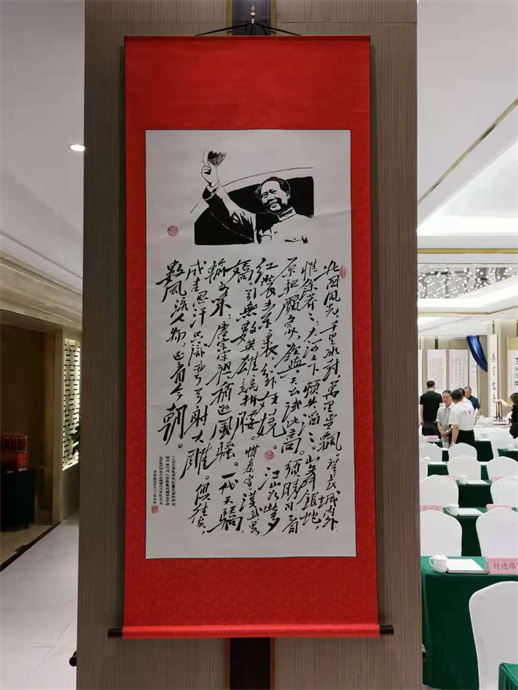 北国风光,千里冰封,万里雪飘。望长城内外,
惟余莽莽,大河上下,顿失滔滔。山舞银蛇,
原驰蜡象,欲与天公试比高。须晴日,看
红装素裹,分外妖娆。江山如此多
娇,引无数英雄竞折腰。惜秦皇汉武,略
输文采,唐宗宋祖,稍逊风骚。一代天骄
成吉思汗,只识弯弓射大雕。俱往矣,
数风流人物,还看今朝。